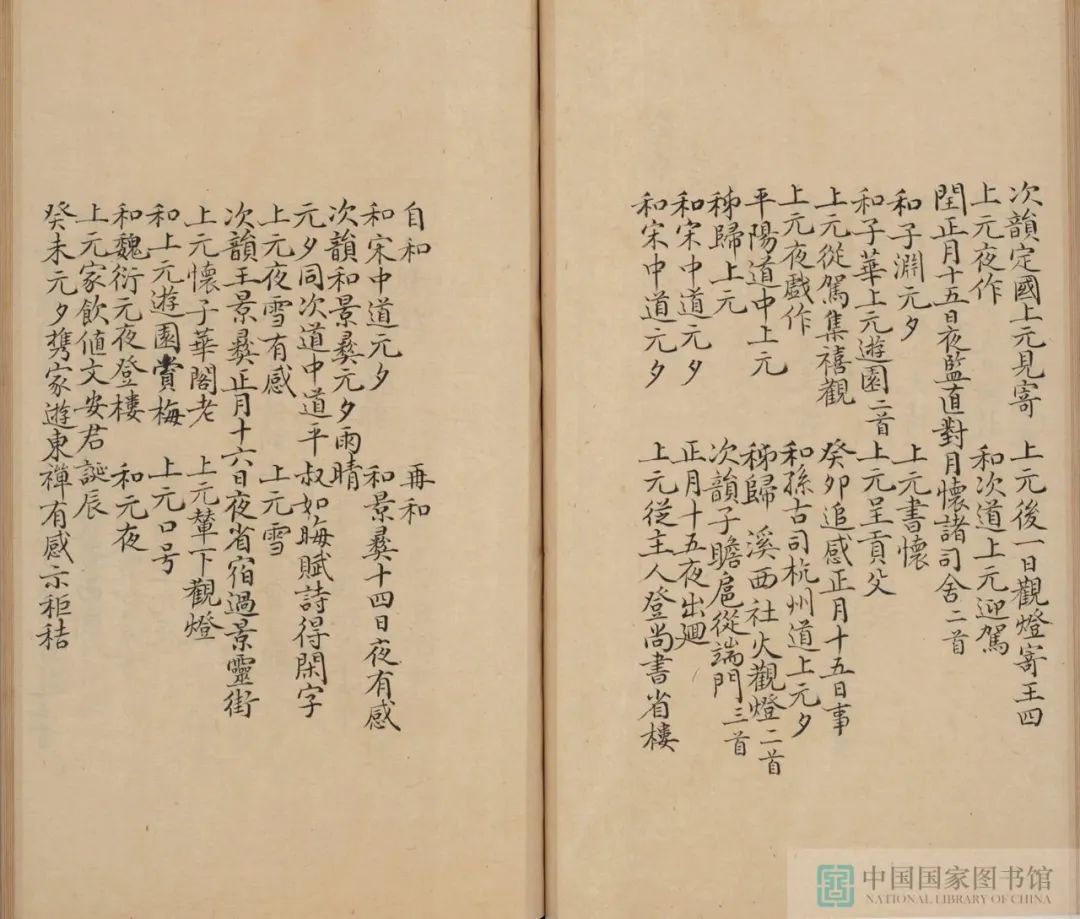 次韻定國上元見寄 上元後一日觀燈寄王四
上元夜作 和次道上元迎駕
閏正月十五日夜監直對月懷諸司舍二首
和子淵元夕 上元書懷
和子華上元遊園二首 上元呈貢父
上元從駕集禧觀 癸夘追感正月十五日事
上元夜戲作 和孫古司杭州道上元夕
平陽道中上元 秭歸 溪西社火觀燈二首
秭歸上元 次韻子瞻扈從端門三首
和宋中道元夕 正月十五夜出廻
和宋中道元夕 上元從主人登尚書省樓
自和 再和
和宋中道元夕 和景彝十四日夜有感
次韻和景彝元夕雨晴
元夕同次道中道平叔如晦賦詩得閑字
上元夜雪有感 上元雪
次韻王景彝正月十六日夜省宿過景靈街
上元懷子華閣老 上元輦下觀燈
和上元遊園賞梅 上元口号
和魏衍元夜登樓 和元夜
上元家飲值文安君誕辰
癸未元夕携家遊東禪有感示秬秸
中国国家图书馆
NATIONAL LIBRARY OF CHINA